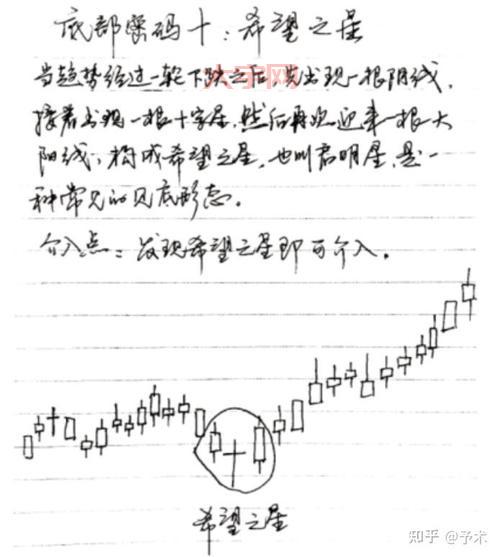 底部密码十：希望之星
当趋势经过一轮下跌之后，先出现一根阴线，
接着出现一根十字星，然后再次迎来一根大
阳线，构成希望之星，也叫启明星，是一
种常见的见底形态。
介入点：发现希望之星即可介入。
希望之星
知乎 @予术